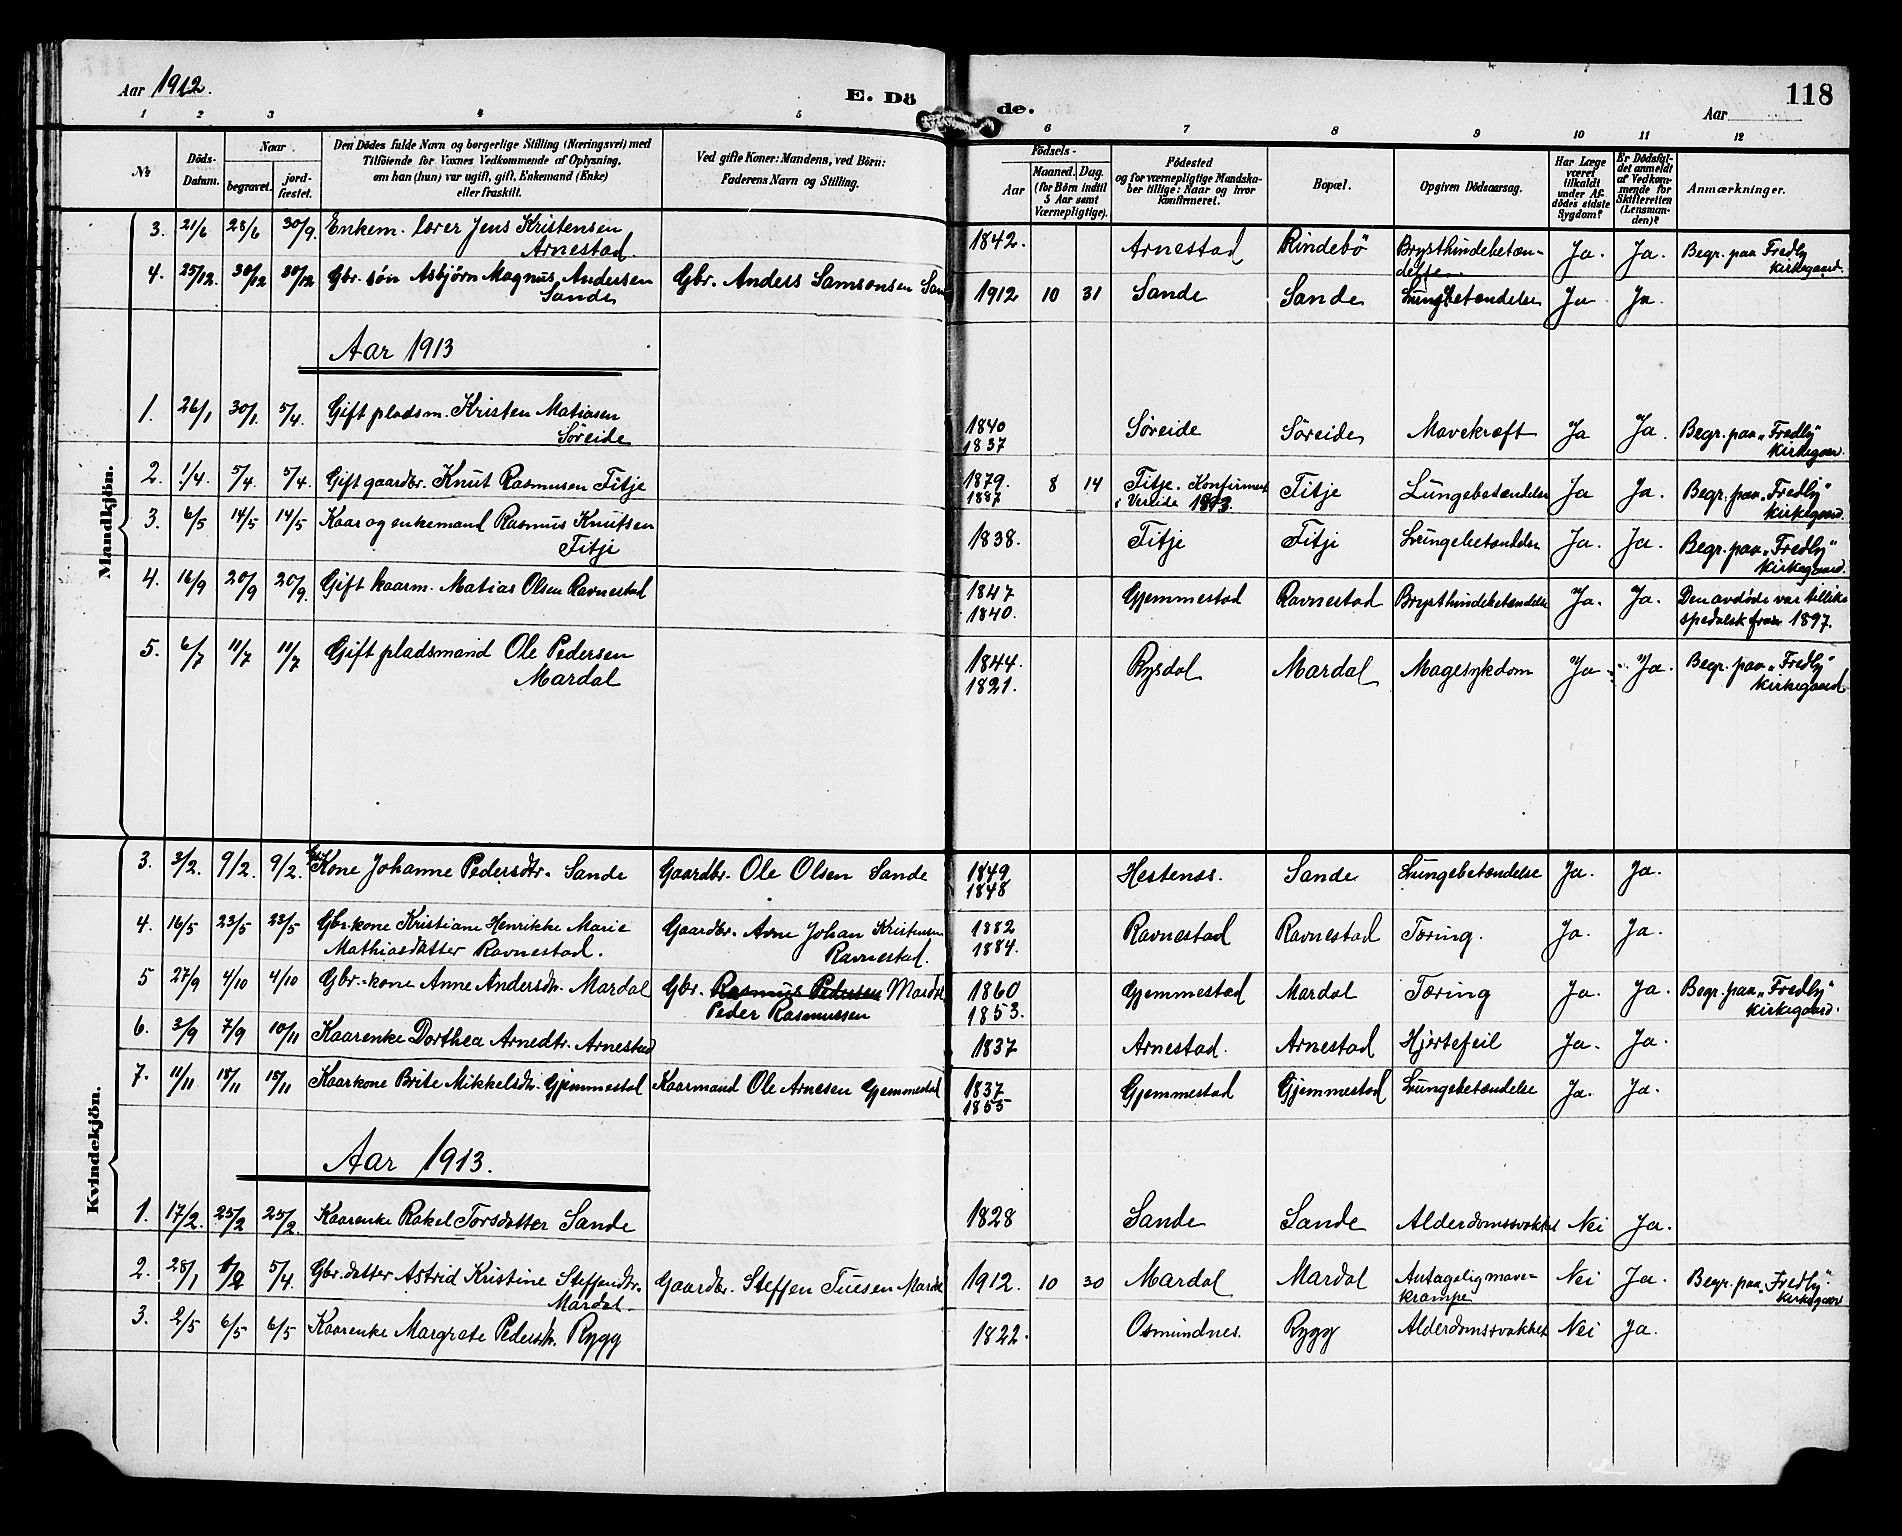 Aar 1912.
E. Döde.
118
Aar
1 2 3 4 5 6 7 8 9 10 11 12
№
Döds-Datum.
Naar
begravet.
jord-fæstet.
Den Dödes fulde Navn og borgerlige Stilling (Næringsvei) med
Tilföiende for Voxnes Vedkommende af Oplysning,
om han (hun) var ugift, gift, Enkemand (Enke)
eller fraskilt.
Ved gifte Koner: Mandens, ved Börn:
Faderens Navn og Stilling.
Födsels-
Aar
Maaned. Dag.
(for Börn indtil
5 Aar samt
Værnepligtige).
Födested
og for værnepligtige Mandska-
ber tillige: Naar og hvor
konfirmeret.
Bopæl.
Opgiven Dödsaarsag.
Har Læge
været
tilkaldt
under Af-
dödes sidste
Sygdom?
Er Dödsfal-
det anmeldt
af Vedkom-
mende for
Skifteretten
(Lensman-
den)?
Anmærkninger.
Mandkjön.
3. 21/6 28/6 30/9. Enkem. lærer Jens Kristensen Arnestad. 1842. Arnestad Rindebö Brysthindebetæn-delse Ja. Ja. Begr. paa Fredly kirkegaard.
4. 25/12. 30/12 30/12 Gbr. søn Asbjørn Magnus Andersen Sande Gbr. Anders Samsonsen San 1912 10 31 Sande Sande Lungebetændelse Ja Ja.
Aar 1913
1. 26/1 30/1. 5/4. Gift pladsm. Kristen Matiasen Søreide 1840 1837 Søreide Søreide Mavekræft Ja Ja. Begr. paa „Fredly" kirkegaar.
2. 1/4. 5/4. 5/4. Gift gaardbr. Knut Rasmusen Fitje 1879. 1887 8 14 Fitje. Konfirmert i Vereide 1893. Fitje Lungebetændelse Ja Ja. Begr. paa „Fredly" kirkegaard.
3. 6/5 14/5 14/5 Kaar og enkemand Rasmus Knutsen Fitje 1838. Fitje Fitje Lungebetændelse Ja. Ja. Begr. paa „Fredly" kirkegaard.
4. 16/9 20/9 20/9. Gift kaarm. Matias Olsen Ravnestad 1847 1840. Gjemmestad Ravnestad Brysthindebetændelse Ja. Ja. Den avdøde var tillike spedalsk fra 1897.
5. 6/7 11/7 11/7 Gift pladsmand Ole Pedersen Mardal 1844. 1821. Rysdal Mardal Magesykdom Ja Ja. Begr. paa „Fredly" kirkegaard
Kvindekjön.
3. 3/2. 9/2. 9/2. Kone Johanne Pedersdtr. Sande Gaardbr. Ole Olsen Sande 1849 1848 Hestenæs. Sande Lungebetændelse Ja. Ja.
4. 16/5 23/5 23/5 Gbr. kone Kristiane Henrikke Marie Mathiasdatter Ravnestad. Gaardbr. Arne Johan Kristensen Ravnestad. 1882 1884. Ravnestad Ravnestad Tæring. Ja. Ja.
5 27/9 4/10 4/10 Gbr.-kone Anne Andersdtr. Mardal Gbr. Rasmus Pedersen Mardal Peder Rasmussen 1860 1853. Gjemmestad Mardal Tæring Ja. Ja. Begr. paa „Fredly" kirkegaard.
6. 3/9 7/9 10/11 Kaarenke Dorthea Arnedtr. Arnestad 1837 Arnestad. Arnestad Hjertefeil Ja. Ja.
7. 11/11 18/11 18/11 Kaarkone Brite Mikkelsdtr. Gjemmestad Kaarmand Ole Arnesen Gjemmestad 1837 1855 Gjemmestad Gjemmestad Lungebetændelse Ja. Ja.
Aar 1913.
1. 17/2. 25/2 25/2. Kaarenke Rakel Torsdatter Sande 1828 Sande Sande Alderdomssvakhet Nei Ja.
2. 28/1 5/4. Gbr. datter Astrid Kristine Steffensdtr. Mardal. Gaardbr. Steffen Tuesen Mardal 1912. 10 30 Mardal Mardal Antagelig mave-krampe Nei Ja. Begr. paa „Fredly" kirkegaar
3. 2/5 6/5 6/5 Kaarenke Margrete Pedersdtr. Rygg 1822. Osmundnes. Rygg Alderdomssvakhet Nei Ja.